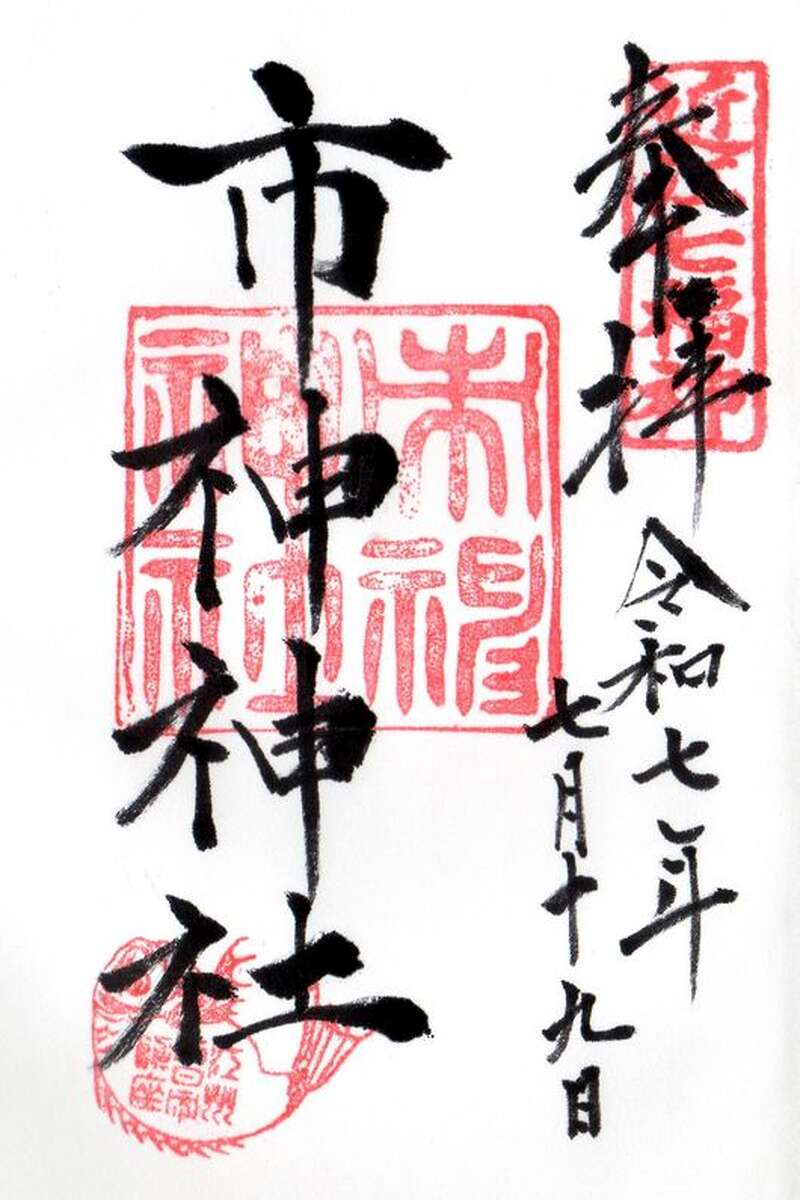 近江七福神
奉拝
令和七年
七月十九日
市神神社
市神
神社